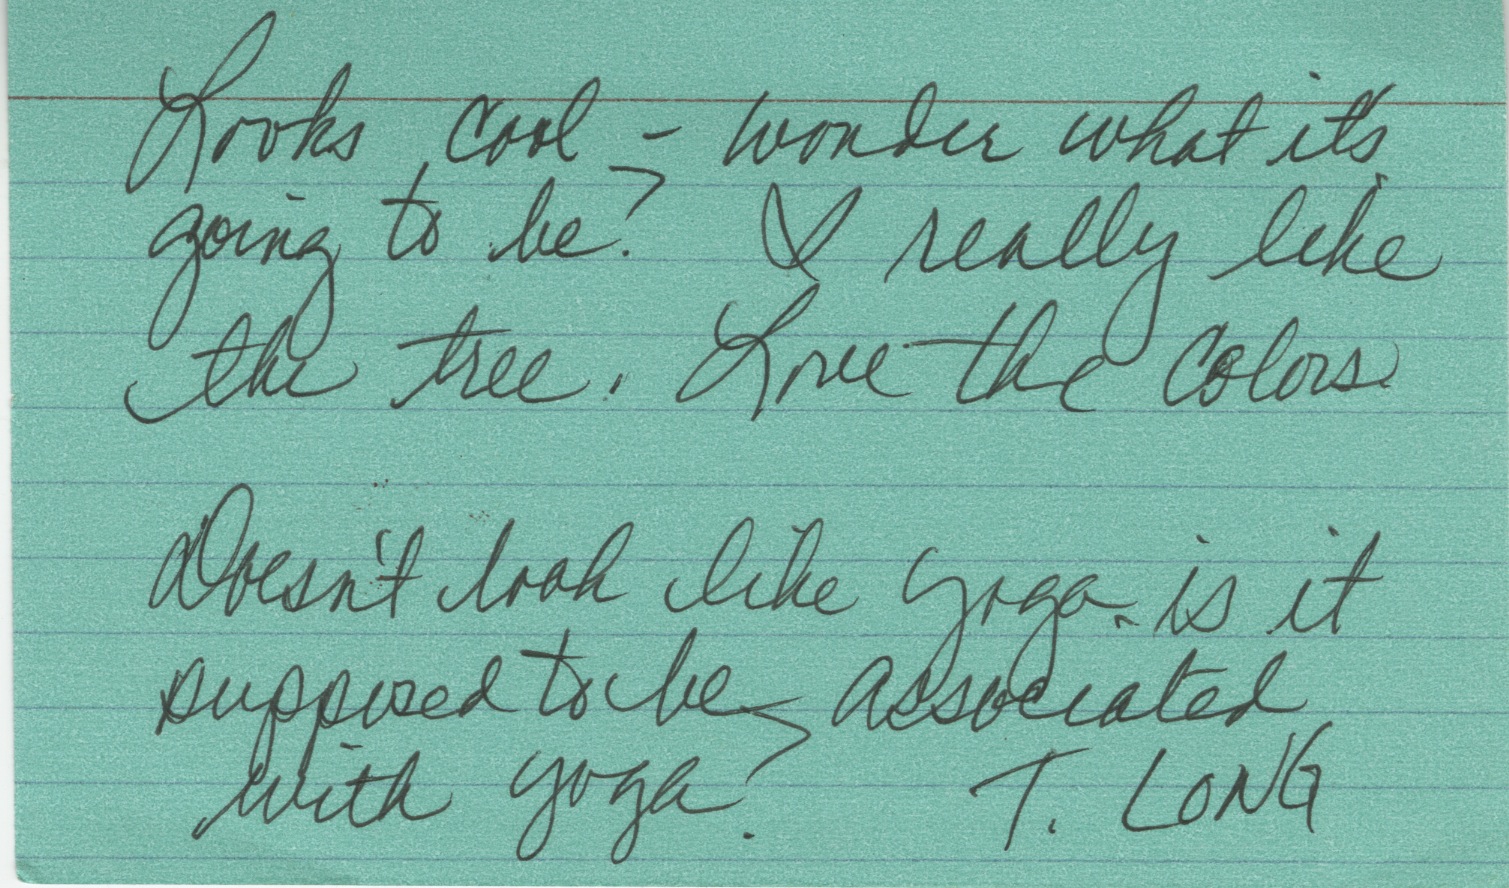 Looks cool - wonder what it's
going to be? I really like
the tree. Love the colors.
Doesn't look like yoga - is it
supposed to be associated
with yoga? T. LONG